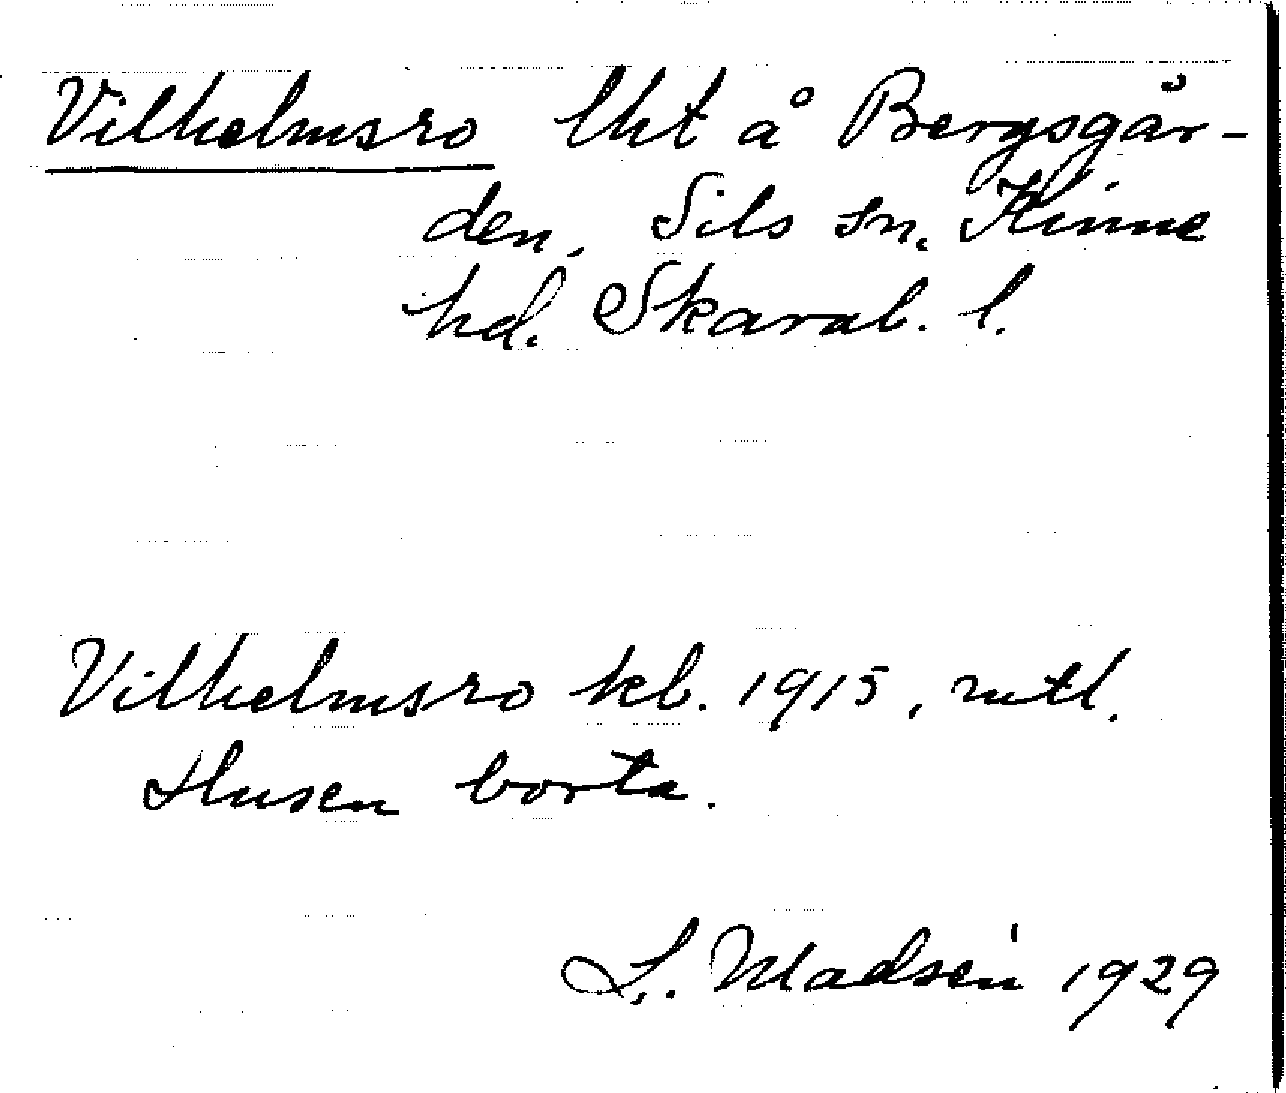 Vilhelmsro lht å Bergsgår-
den, Sils sn. Kinne
hd. Skarab. l.
Vilhelmsro kb. 1915, mtl.
Husen borta.
L. Madsén 1929